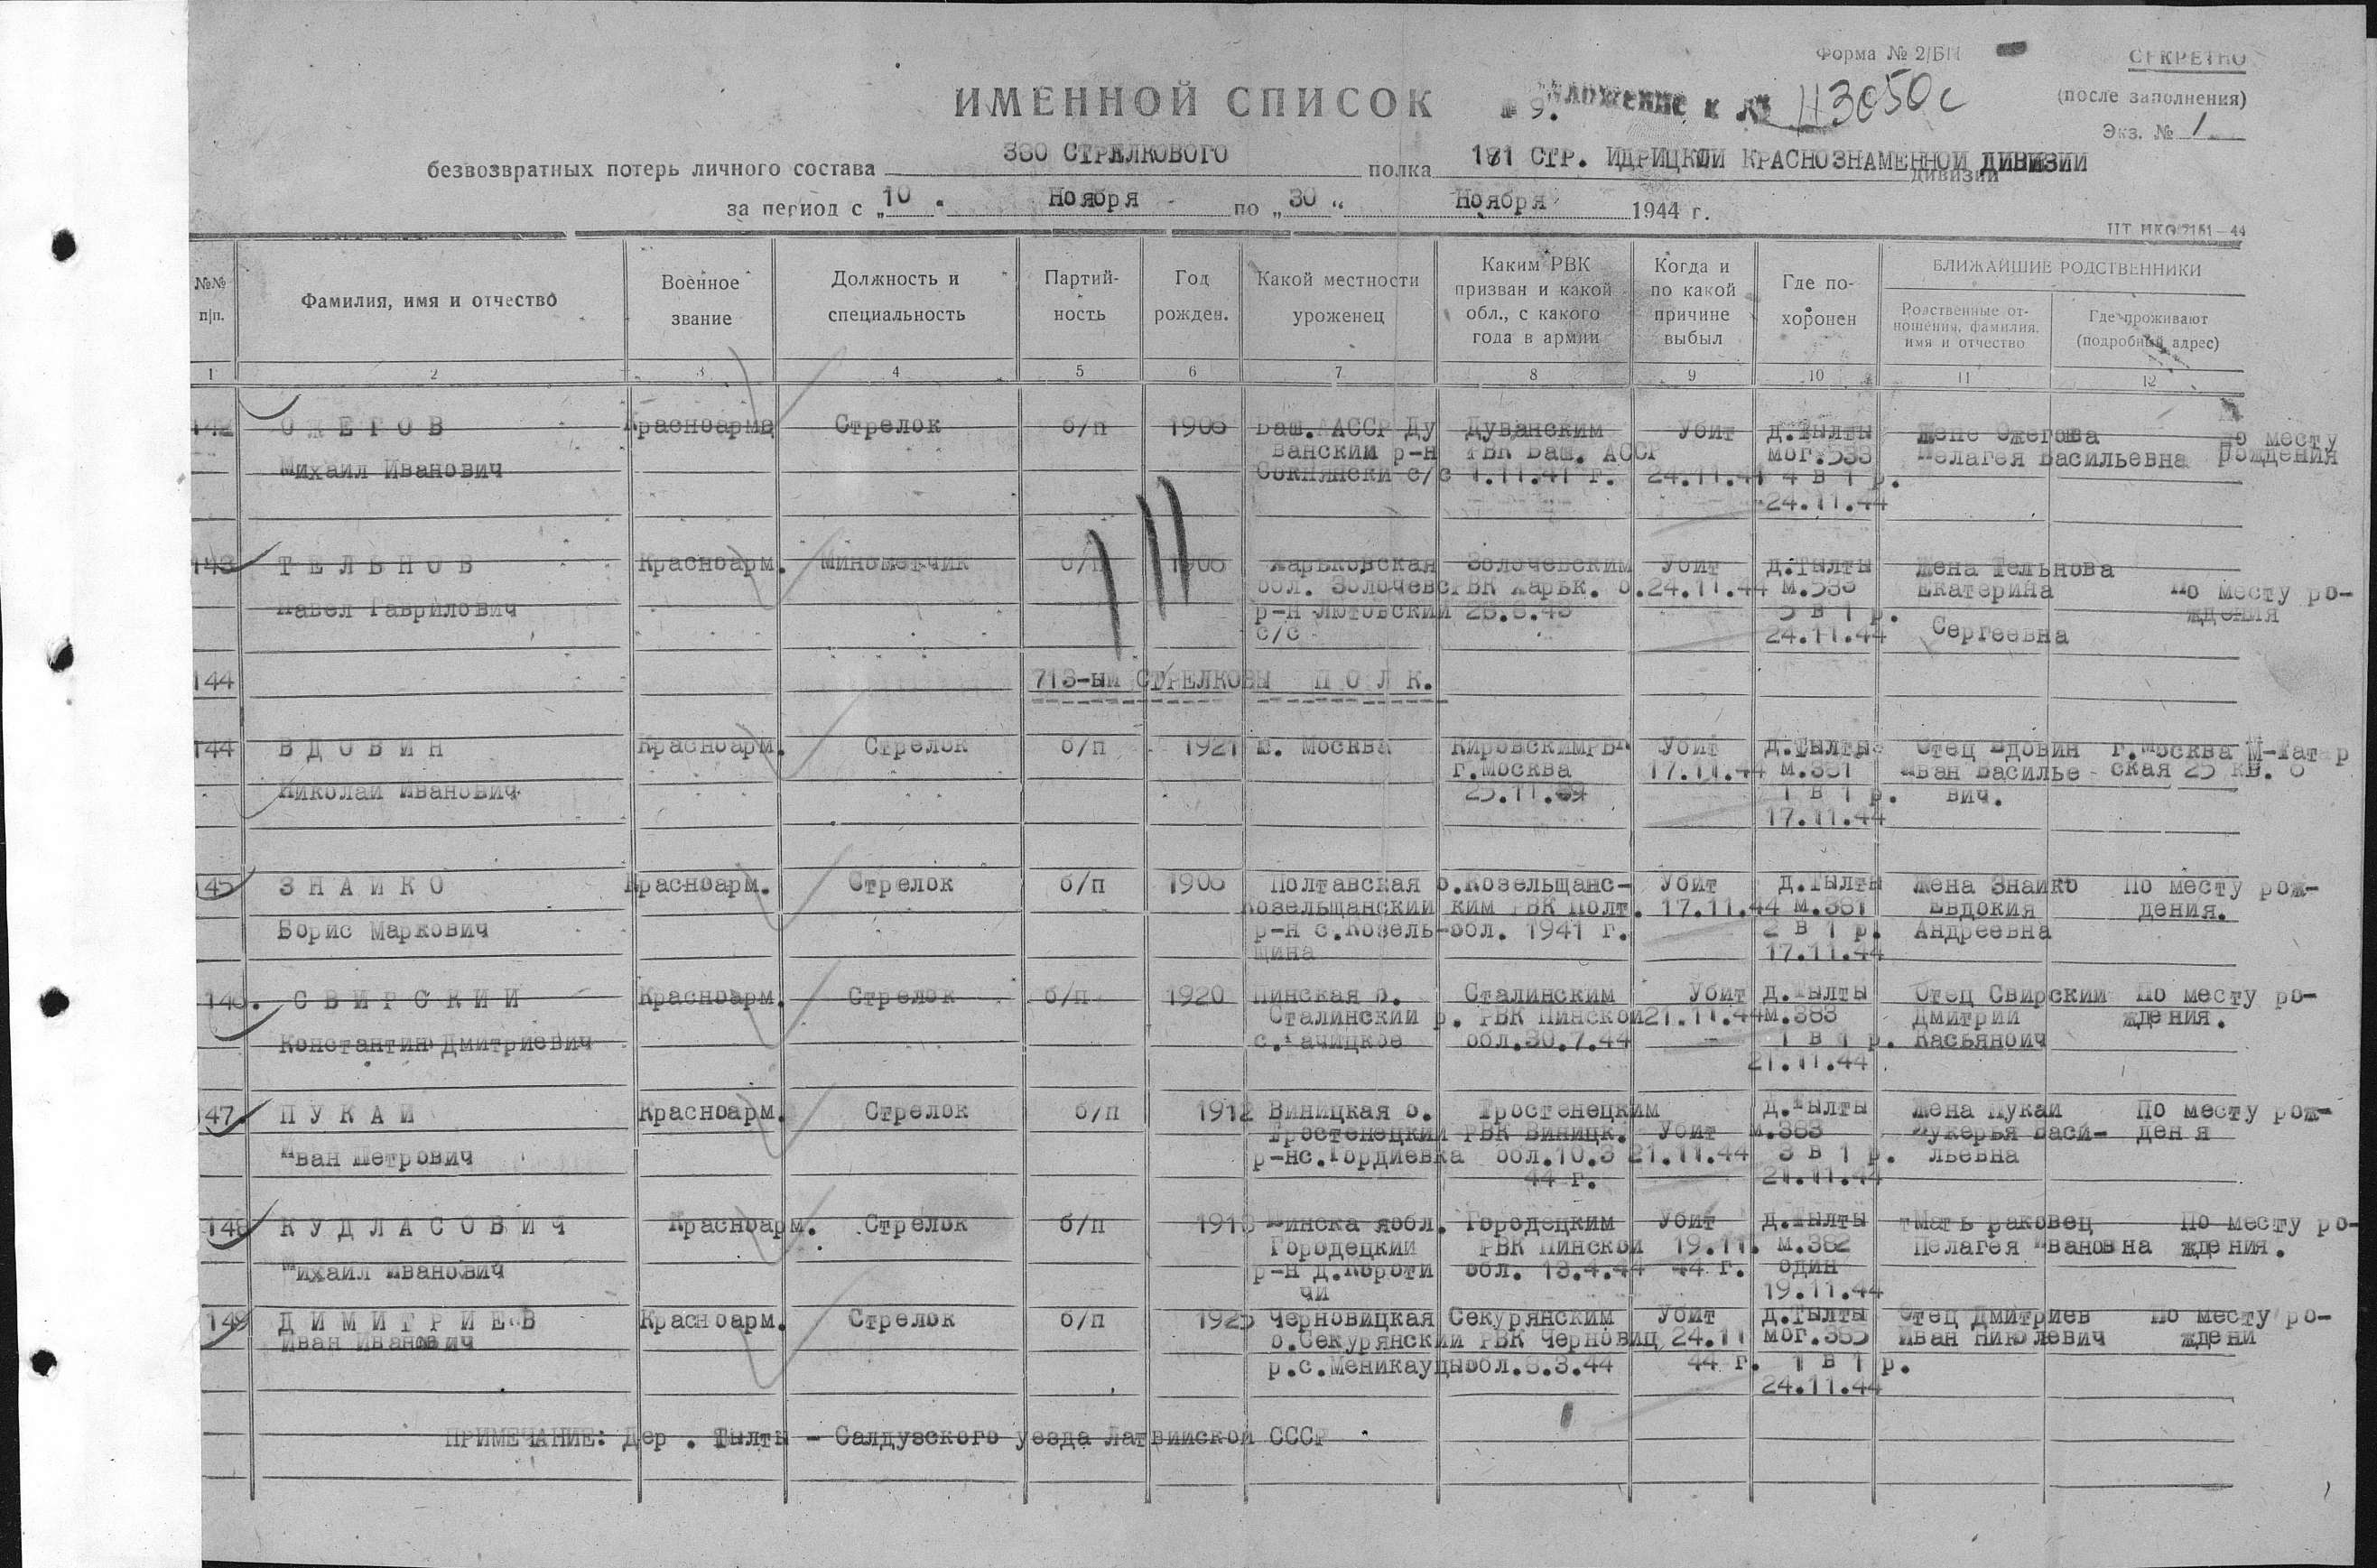 Форма № 2/БП
СЕКРЕТНО
(после заполнения)
Экз. № 1
ИМЕННОЙ СПИСОК
№ 9. ложение к № 43050с
безвозвратных потерь личного состава 380 СТРЕЛКОВОГО полка 171 СТР. ИДРИЦКОЙ КРАСНОЗНАМЕННОЙ ДИВИЗИИ
дивизии
за период с „10 " Ноября по „30" Ноября 1944 г.
№№ п|п.
Фамилия, имя и отчество
Военное звание
Должность и специальность
Партий-ность
Год рожден.
Какой местности уроженец
Каким РВК призван и какой обл., с какого года в армии
Когда и по какой причине выбыл
Где по-хоронен
БЛИЖАЙШИЕ РОДСТВЕННИКИ
Родственные от-ношения, фамилия, имя и отчество
Где проживают (подробный адрес)
1 2 3 4 5 6 7 8 9 10 11 12
142 ОЖЕГОВ Красноарм Стрелок б/п Баш. АССР Ду Дуванским Убит д.Тылты Жене Ожегова По месту
ванский р-н РВК Баш. АССР мог.533 Пелагея Васильевна рождения
Михаил Иванович с/с 1.11.41 г. 24.11.44 4 в 1 р.
24.11.44
143 ТЕЛЬНОВ Красноарм. Минометчик б/п Харьковская Золочевским Убит д.Тылты Жена Тельнова
обл. Золочевс РВК Харьк. о. 24.11.44 Екатерина По месту ро-
Павел Гаврилович р-н Лютовский 5 в 1 р. ждения
с/с 24.11.44 Сергеевна
144 713-ый СТРЕЛКОВЫ ПОЛК.
144 ВДОВИН Красноарм. Стрелок б/п 1921 Москва Кировским РВК Убит д.Тылты Отец Вдовин г.Москва М-Татар
г.Москва 17.11.44 м.381 Иван Василье- ская 25 кв. 6
Николай Иванович 1 в 1 р. вич.
17.11.44
145 ЗНАЙКО Красноарм. Стрелок б/п Полтавская о. Козельщанс- Убит д.Тылты Жена Знайко По месту рож-
Козельщанский ким РВК Полт. 17.11.44 м.381 Евдокия дения.
Борис Маркович р-н с.Козель- обл. 1941 г. 2 в 1 р. Андреевна
щина 17.11.44
146. СВИРСКИЙ Красноарм. Стрелок б/п 1920 Пинская о. Сталинским Убит д.Тылты Отец Свирский По месту ро-
Сталинский р. РВК Пинской 21.11.44 м.383 Дмитрий ждения.
Константин Дмитриевич обл.30.7.44 1 в 1 р. Касьяноич
21.11.44
147 ПУКАЙ Красноарм. Стрелок б/п 1912 Виницкая о. Тростенецким д.Тылты Жена Пукай По месту рож-
Тростенецкий РВК Виницк. Убит м.383 Лукерья Васи- ден я
Иван Петрович р-нс.Гордиевка обл.10.3 21.11.44 3 в 1 р. льевна
44 г. 21.11.44
148 КУДЛАСОВИЧ Красноарм. Стрелок б/п Пинска яобл. Городецким Убит д.Тылты Мать Раковец По месту ро-
Городецкий РВК Пинской 19.11. м.382 Пелагея Ивановна ждения.
Михаил Иванович р-н д.Короти обл. 13.4.44 44 г. один
чи 19.11.44
149 ДИМИТРИЕВ Красноарм. Стрелок б/п 1925 Черновицкая Секурянским Убит д.Тылты Отец Дмитриев По месту ро-
Иван Иванович о.Секурянский РВК Черновиц 24.11 мог.385 Иван Николевич ждени
р.с.Меникауцы обл.8.3.44 44 г. 1 в 1 р.
24.11.44
ПРИМЕЧАНИЕ: Дер . Тылты - Салдузского уезда Латвийской СССР